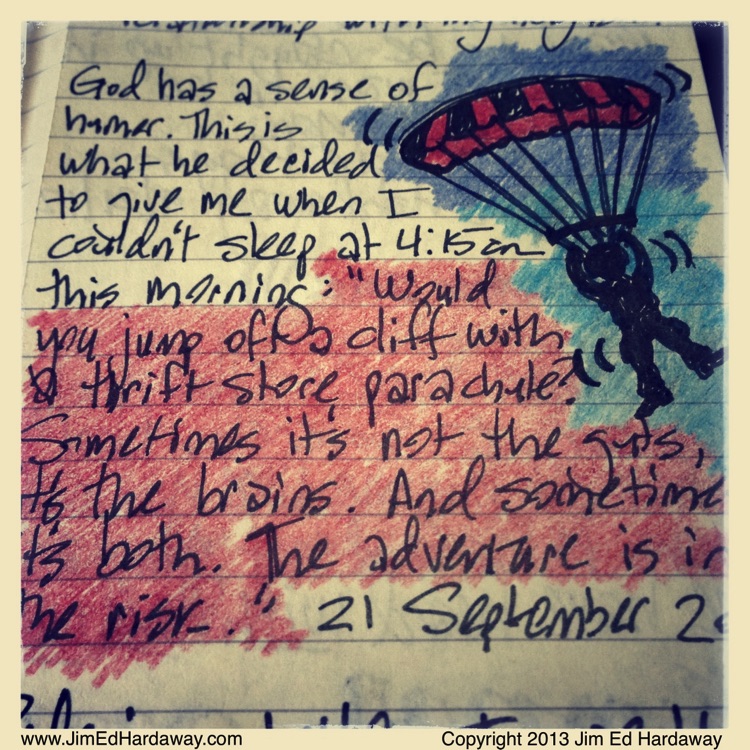 relationship with my
God has a sense of
humor. This is
what he decided
to give me when I
couldn't sleep at 4:15am
this morning: "Would
you jump off a cliff with
a thrift store parachute?
Sometimes it's not the guts,
it's the brains. And sometime
it's both. The adventure is in
the risk." 21 September 2
www.JimEdHardaway.com
Copyright 2013 Jim Ed Hardaway